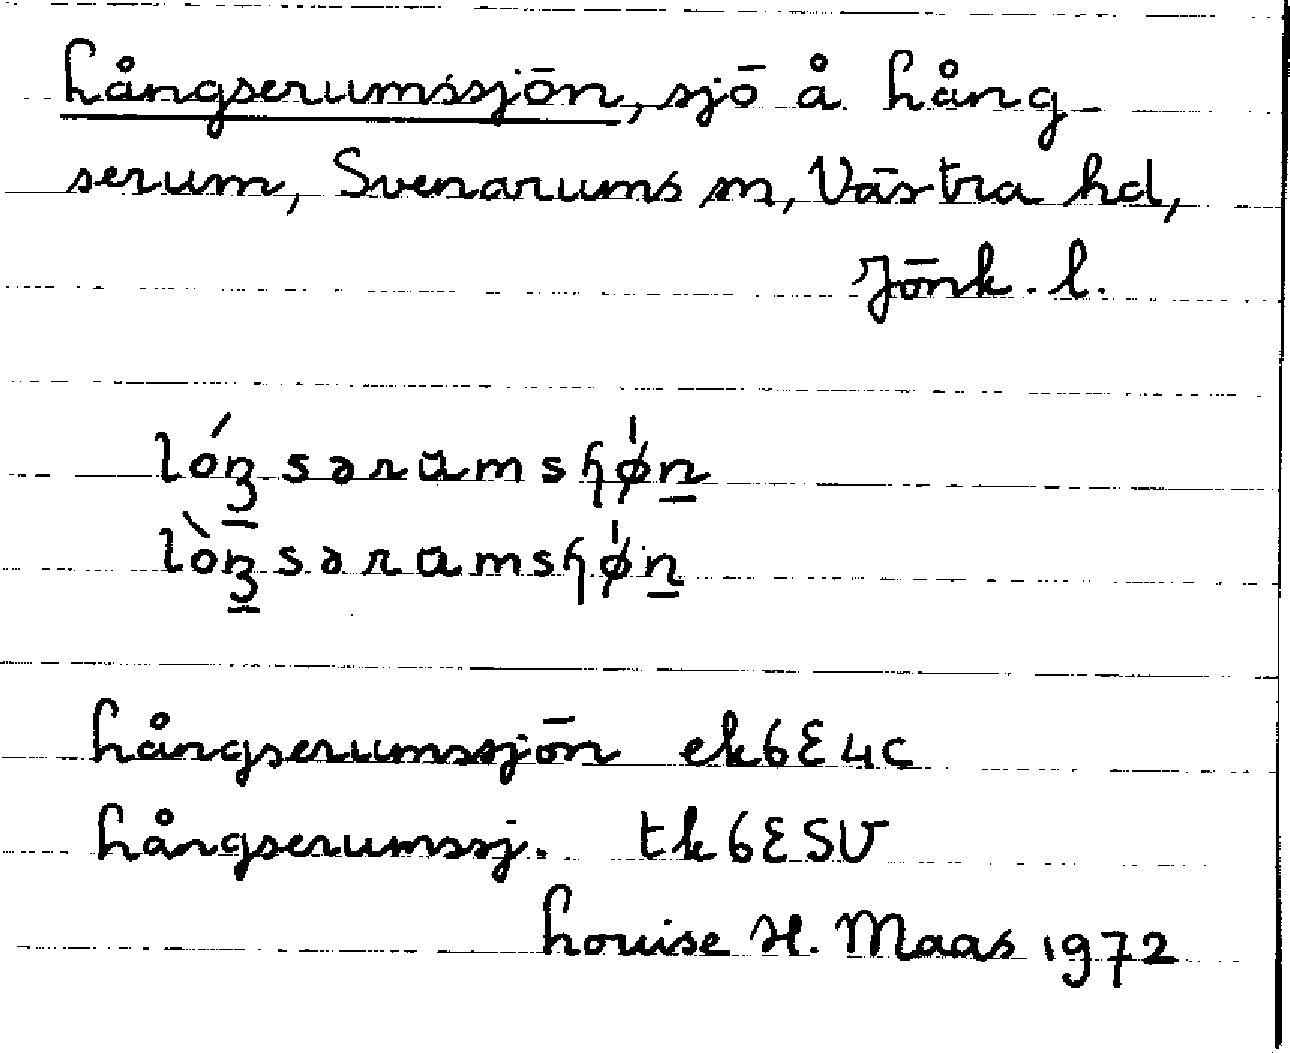 Långserumssjön, sjö å Lång-
serum, Svenarums sn, Västra hd,
Jönk. l.
Långserumssjön ek6E4c
Långserumssj. tk6ESV
Louise H. Maas 1972